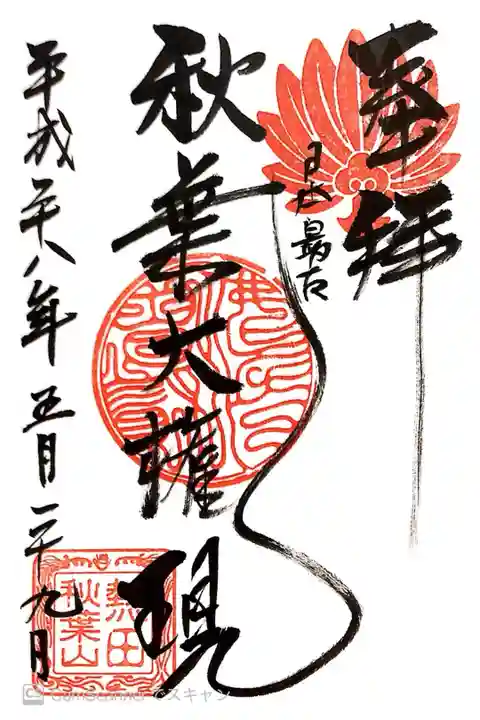 奉拝
日本最古
秋葉大権現
平成二十八年五月二十九日
熱田
秋葉山
CamScannerでスキャン